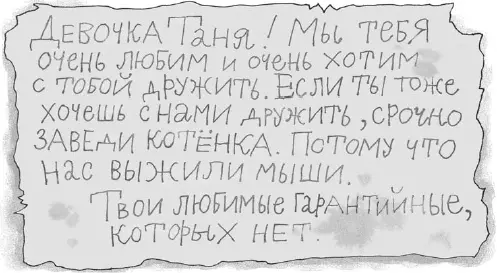 Девочка Таня! Мы тебя
очень любим и очень хотим
с тобой дружить. Если ты тоже
хочешь с нами дружить, срочно
заведи котёнка. Потому что
нас выжили мыши.
Твои любимые гарантийные,
которых нет.